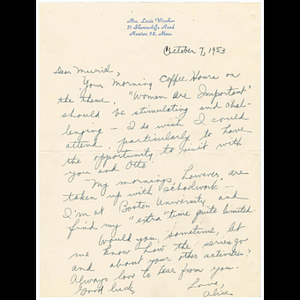 Mrs. Louis Wirsher
21 Shorncliffe Road
Newton 58, Mass.
October 7, 1953
Dear Muriel,
Your Morning Coffee Hours on
the theme, "Women Are Important"
should be stimulating and chal-
lenging — I do wish I could
attend, particularly to have
the opportunity to visit with
you and Otto.
My mornings, however, are
taken up with schoolwork —
I'm at Boston University, and
find my "extra" time quite limited.
Would you, sometime, let
me know how the series go
and about your other activities?
Always love to hear from you.
Good luck,
Love,
Alice